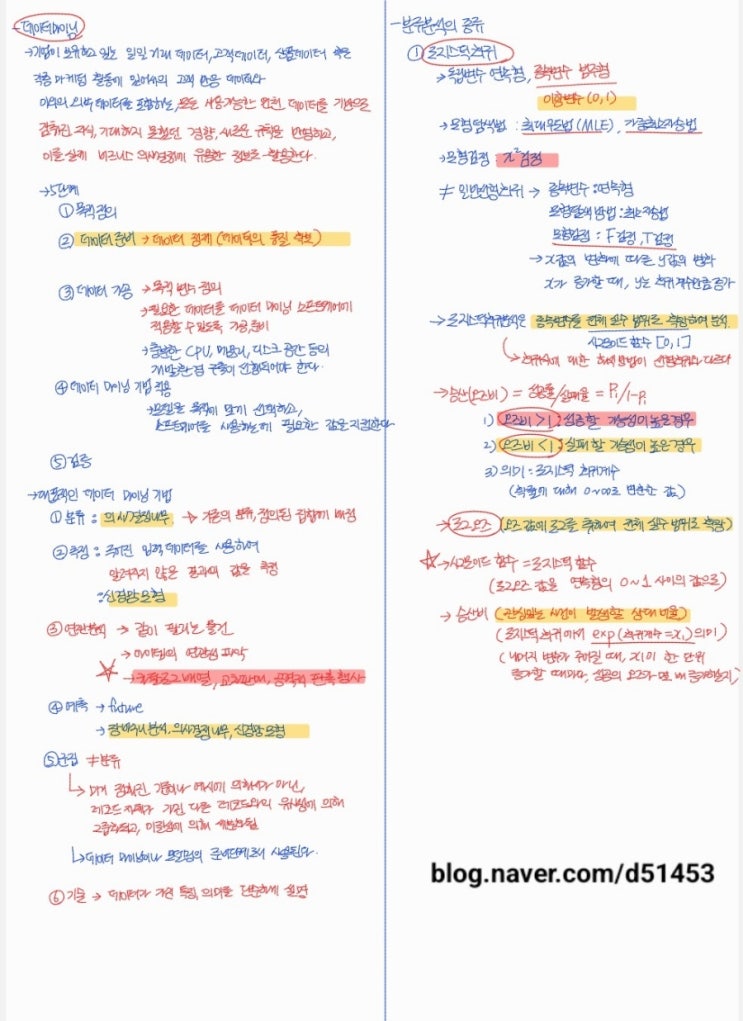 - 데이터마이닝
→ 기업이 보유하고 있는 일일 거래 데이터, 고객데이터, 상품데이터 혹은
각종 마케팅 활동에 있어서의 고객 반응 데이터와
이외의 외부 데이터를 포함하는, 모든 사용가능한 원천 데이터를 기반으로
감춰진 지식, 기대하지 못했던 경향, 새로운 규칙을 발견하고,
이를 실제 비즈니스 의사결정에 유용한 정보로 활용한다.
→ 5단계
① 목적 정의
② 데이터 준비 → 데이터 정제 (데이터의 품질 확보)
③ 데이터 가공 → 목적 변수 정의
→ 필요한 데이터를 데이터 마이닝 소프트웨어에
적용할 수 있도록 가공, 준비
→ 충분한 CPU, 메모리, 디스크 공간 등의
개발환경 구축이 선행되어야 한다.
④ 데이터 마이닝 기법 적용
→ 모델을 목적에 맞게 선택하고,
소프트웨어를 사용하는데 필요한 값을 지정한다
⑤ 검증
→ 대표적인 데이터 마이닝 기법
① 분류 : 의사결정나무 → 기존의 분류, 정의된 집합에 배정
② 추정 : 주어진 입력 데이터를 사용하여
알려지지 않은 결과의 값을 추정
: 신경망 모형
③ 연관분석 → 같이 팔리는 물건
→ 아이템의 연관성 파악
☆ → 카탈로그 배열, 교차판매, 공격적 판촉행사
④ 예측 → future
→ 장바구니 분석, 의사결정나무, 신경망 모형
⑤ 군집 ≠ 분류
↳ 미리 정의된 기준이나 예시에 의해서가 아닌,
레코드 자체가 가진 다른 레코드와의 유사성에 의해
그룹화되고, 이질성에 의해 세분화됨
↳ 데이터 마이닝이나 모델링의 준비단계로서 사용된다.
⑥ 기술 → 데이터가 가진 특징, 의미를 단순하게 설명
- 분류분석의 종류
① 로지스틱회귀
→ 독립변수 연속형, 종속변수 범주형
이항변수 (0,1)
→ 모형탐색방법 : 최대우도법 (MLE), 가중최소자승법
→ 모형검정 : x²검정
≠ 일반선형회귀 → 종속변수 : 연속형
모형탐색방법 : 최소자승법
모형검정 : F검정, T검정
→ x값의 변화에 따른 y값의 변화
x가 증가할 때, y는 회귀계수만큼 증가
→ 로지스틱회귀분석은 종속변수를 전체 실수 범위로 확장하여 분석.
시그모이드 함수 [0,1]
↳ 회귀식에 대한 해석 방법이 선형회귀와 다르다
→ 승산(오즈비) = 성공률/실패율 = Pi/1-Pi
1) 오즈비 > 1 : 성공할 가능성이 높은 경우
2) 오즈비 < 1 : 실패할 가능성이 높은 경우
3) 의미 : 로지스틱 회귀계수
(확률에 대해 0~∞로 변환한 값)
→ 로그오즈 (오즈 값에 로그를 취하여 전체 실수 범위로 확장)
☆ → 시그모이드 함수 = 로지스틱 함수
(로그오즈 값을 연속형의 0~1 사이의 값으로)
→ 승산비 (관심있는 사건이 발생할 상대 비율)
(로지스틱 회귀에서 exp(회귀계수 = x₁) 의미)
(나머지 변수가 주어질 때, x1이 한 단위
증가할 때마다, 성공의 오즈가 몇 배 증가하는지)
blog.naver.com/d51453